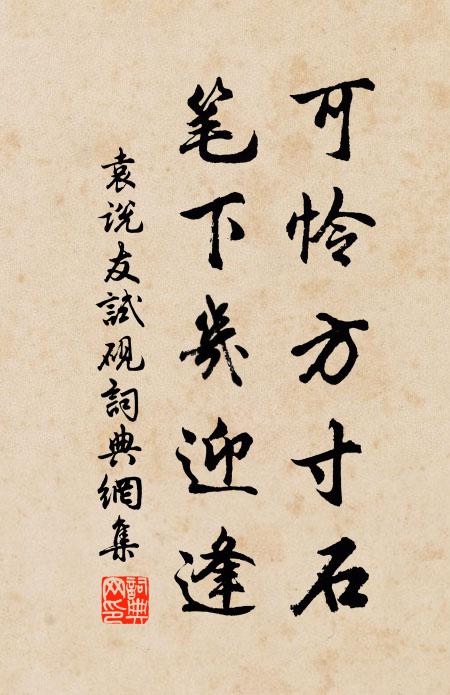 可怜方寸石
笔下幾迎逢
袁说友試硯詞典網集
詞典網印